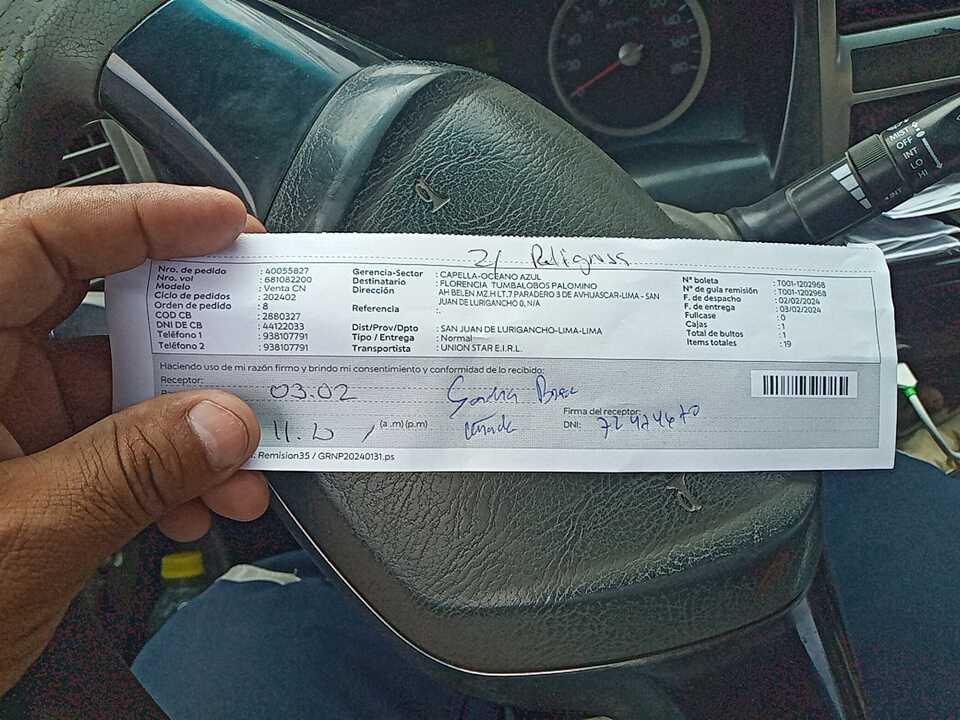 Nro. de pedido : 40055827
Nro. vol : 681082200
Modelo : Venta CN
Ciclo de pedidos : 202402
Orden de pedido : 8
COD CB : 2880327
DNI DE CB : 44122033
Teléfono 1 : 938107791
Teléfono 2 : 938107791
Gerencia-Sector : CAPELLA-OCEANO AZUL
Destinatario : FLORENCIA TUMBALOBOS PALOMINO
Dirección : AH BELEN MZ.H LT.7 PARADERO 3 DE AVHUASCAR-LIMA - SAN
JUAN DE LURIGANCHO 0, N/A
Referencia : .
Dist/Prov/Dpto : SAN JUAN DE LURIGANCHO-LIMA-LIMA
Tipo / Entrega : Normal
Transportista : UNION STAR E.I.R.L.
N° boleta : T001-1202968
N° de guía remisión : T001-1202968
F. de despacho : 02/02/2024
F. de entrega : 03/02/2024
Fullcase : 0
Cajas : 1
Total de bultos : 1
Items totales : 19
Haciendo uso de mi razón firmo y brindo mi consentimiento y conformidad de lo recibido:
Receptor:
03.02
(a .m) (p.m)
Firma del receptor:
DNI:
Remision35 / GRNP20240131.ps
MIST
OFF
INT
LO
HI
INT